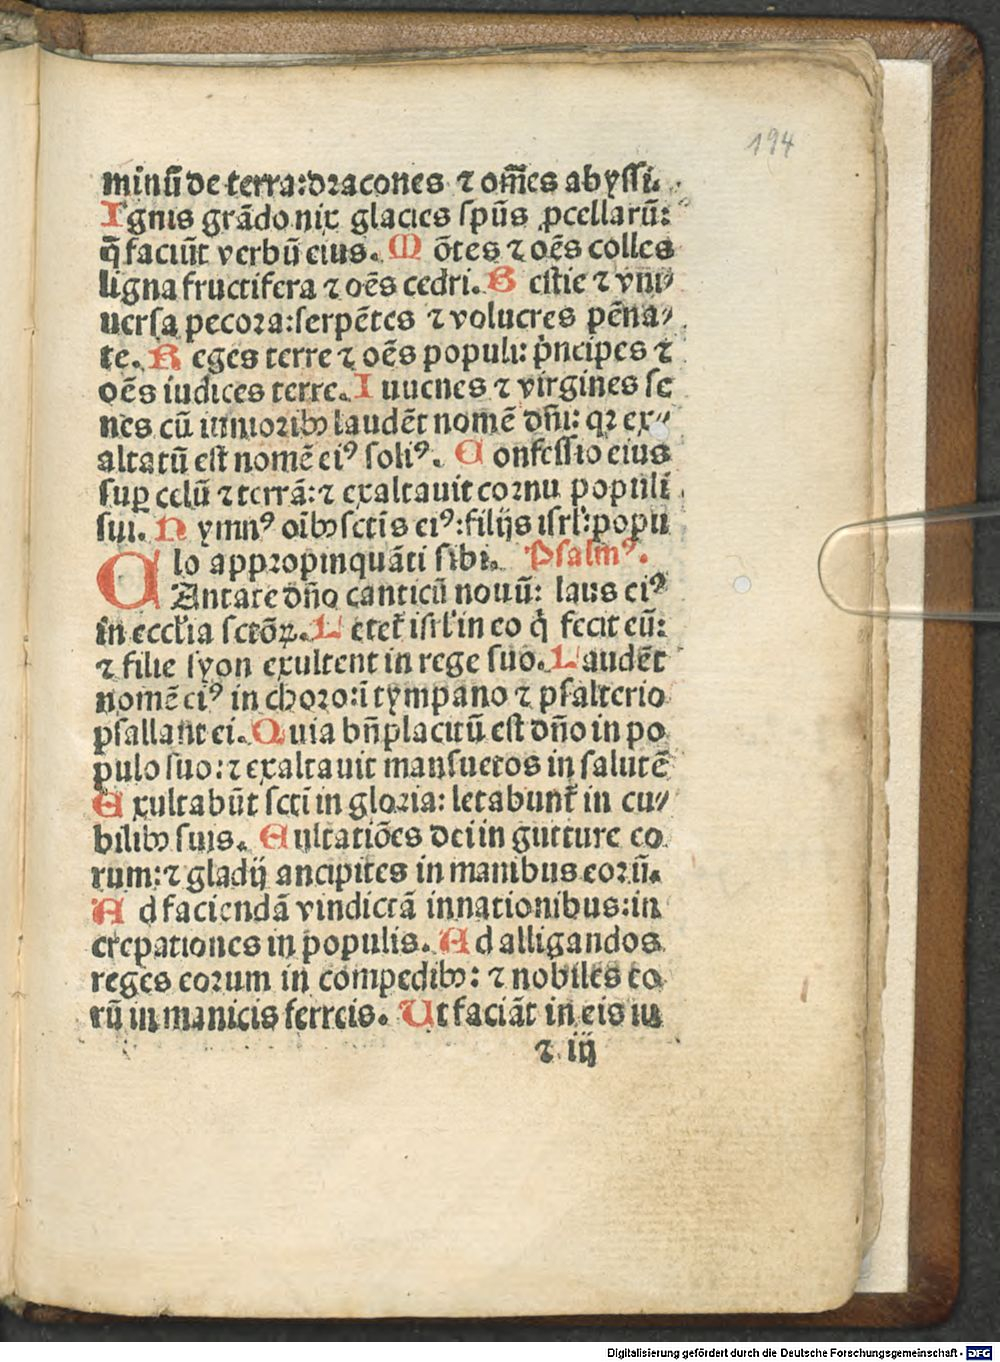 194
minū de terra: dracones ⁊ om̄es abyssi.
Ignis grādo nix glacies spūs ꝓcellarū:
q̄ faciūt verbū eius. Mōtes ⁊ oēs colles
ligna fructifera ⁊ oēs cedri. Bestie ⁊ vni⸗
uersa pecora: serpētes ⁊ volucres pēna⸗
te. Reges terre ⁊ oēs populi: p̄ncipes ⁊
oēs iudices terre. Iuuenes ⁊ virgines se
nes cū iuniorib⁹ laudēt nomē dn̄i: qꝛ ex⸗
altatū est nomē ei⁹ soli⁹. Confessio eius
suꝑ celū ⁊ terrā: ⁊ exaltauit cornu populi
sui. Nymn⁹ oīb⁹ sctīs ei⁹: filijs isrl̄: popu
lo appropinquāti sibi. Psalm⁹.
CAntate dn̄o canticū nouū: laus ei⁹
in eccl̄ia sctōꝝ. Letet᷑ isrl̄ in eo q̇ fecit eū:
⁊ filie syon exultent in rege suo. Laudēt
nomē ei⁹ in choro: ī tympano ⁊ psalterio
psallant ei. Quia bn̄placitū est dn̄o in po
pulo suo: ⁊ exaltauit mansuetos in salutē
Exultabūt sctī in gloria: letabunt᷑ in cu⸗
bilib⁹ suis. Eultatiōes dei in gutture eo
rum: ⁊ gladij ancipites in manibus eorū.
Ad faciendā vindictā in nationibus: in
crepationes in populis. Ad alligandos
reges eorum in compedib⁹: ⁊ nobiles eo
rū in manicis ferreis. Ut faciāt in eis iu
⁊ iij
Digitalisierung gefördert durch die Deutsche Forschungsgemeinschaft - DFG